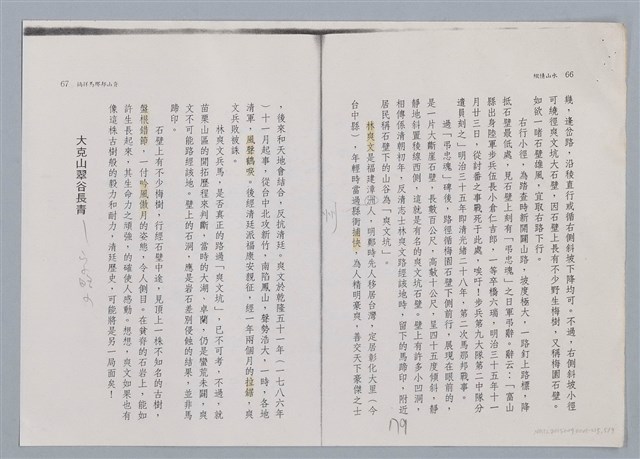 66 水山情懷
幾，逢岔路，沿稜直行或循右側斜坡下降均可。不過，右側斜坡小徑
可繞徑爽文坑大石壁，因石壁上長有不少野生梅樹，又稱梅園石壁。
如欲一睹石壁雄風，宜取右路下行。
右行小徑，為踏查時新開闢山路，坡度極大，一路釘上路標，降
抵石壁最低處，見石壁上刻有「弔忠魂」之日軍弔辭。辭云：「富山
縣出身陸軍步兵伍長小倉仁吉郎，一等卒橋六瑀，明治三十五年十一
月廿三日，從討番之事戰死于此處，唉吁！步兵第九大隊第二中隊分
遣員刻之」明治三十五年即清光緒二十八年，第二次馬那邦戰事。
過「弔忠魂」碑後，路徑循梅園石壁下側前行，展現在眼前的，
是一片大斷崖石壁，長數百公尺，高數十公尺，呈四十五度傾斜，靜
靜地斜置稜線西側，這就是有名的爽文坑石壁。壁上有許多小凹洞，
相傳係清朝初年，反清志士林爽文路經該地時，留下的馬蹄印，附近
居民稱石壁下的山谷為「爽文坑」。
林爽文是福建漳洲人，明鄭時先人移居台灣，定居彰化大里（今
州
台中縣），年輕時當過縣衙捕快，為人精明豪爽，善交天下豪傑之士
79
67
，後來和天地會結合，反抗清廷。爽文於乾隆五十一年（一七八六年
）十一月起事，從台中北攻新竹，南陷鳳山，聲勢浩大，一時，各地
清軍，風聲鶴唳。後經清廷派福康安親征，經一年兩個月的拉鋸，爽
文兵敗被誅。
林爽文兵馬，是否真正的路過「爽文坑」，已不可考，不過，就
苗栗山區的開拓歷程來判斷，當時的大湖、卓蘭，仍是蠻荒未闢，爽
文不可能路經該地。壁上的石洞，應是岩石差別侵蝕的結果，並非馬
蹄印。
石壁上有不少梅樹，行經石壁中途，見頂上一株不知名的古樹，
盤根錯節，一付吟風傲月的姿態，令人側目。在貧脊的石岩上，能如
許生長起來，其生命力之頑強，的確使人感動。想想，爽文如果也有
像這株古樹般的毅力和耐力，清廷歷史，可能將是另一局面矣！
大克山翠谷長青